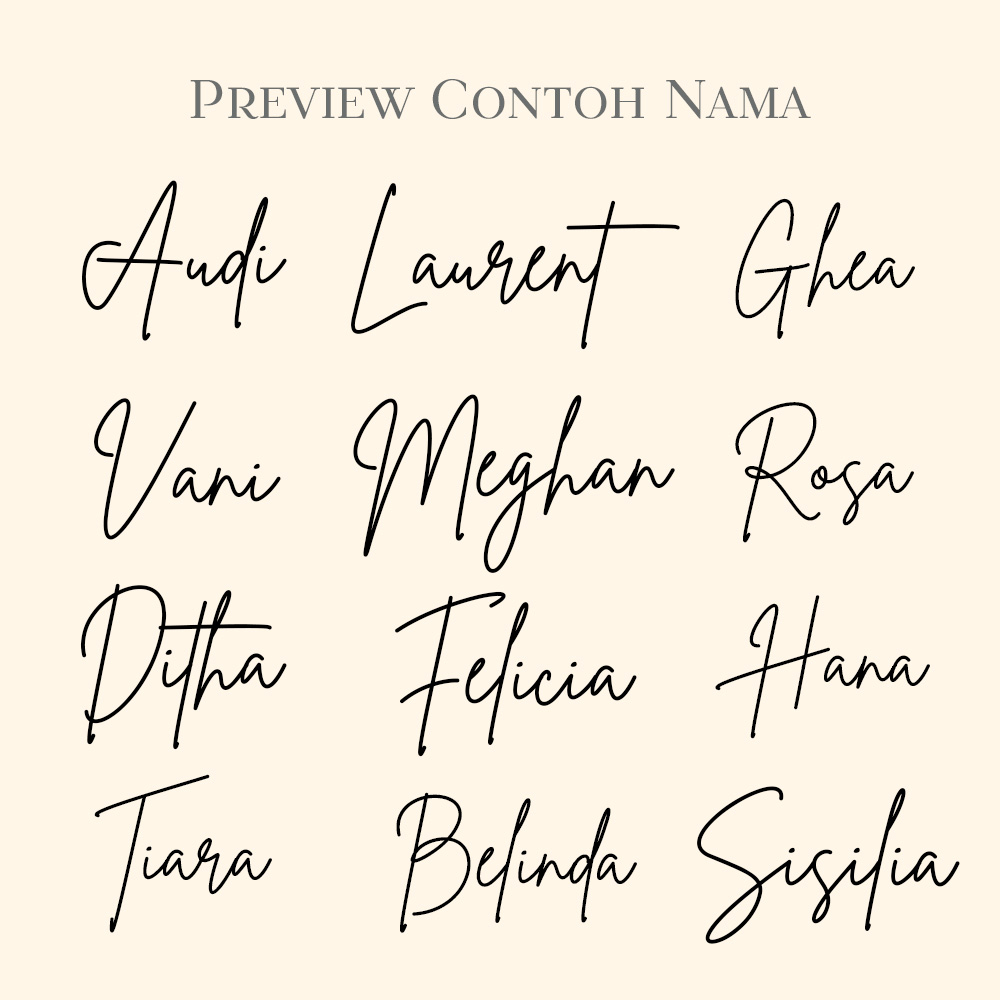 Preview Contoh Nama
Audi Laurent Ghea
Vani Meghan Rosa
Ditha Felicia Hana
Tiara Belinda Sisilia